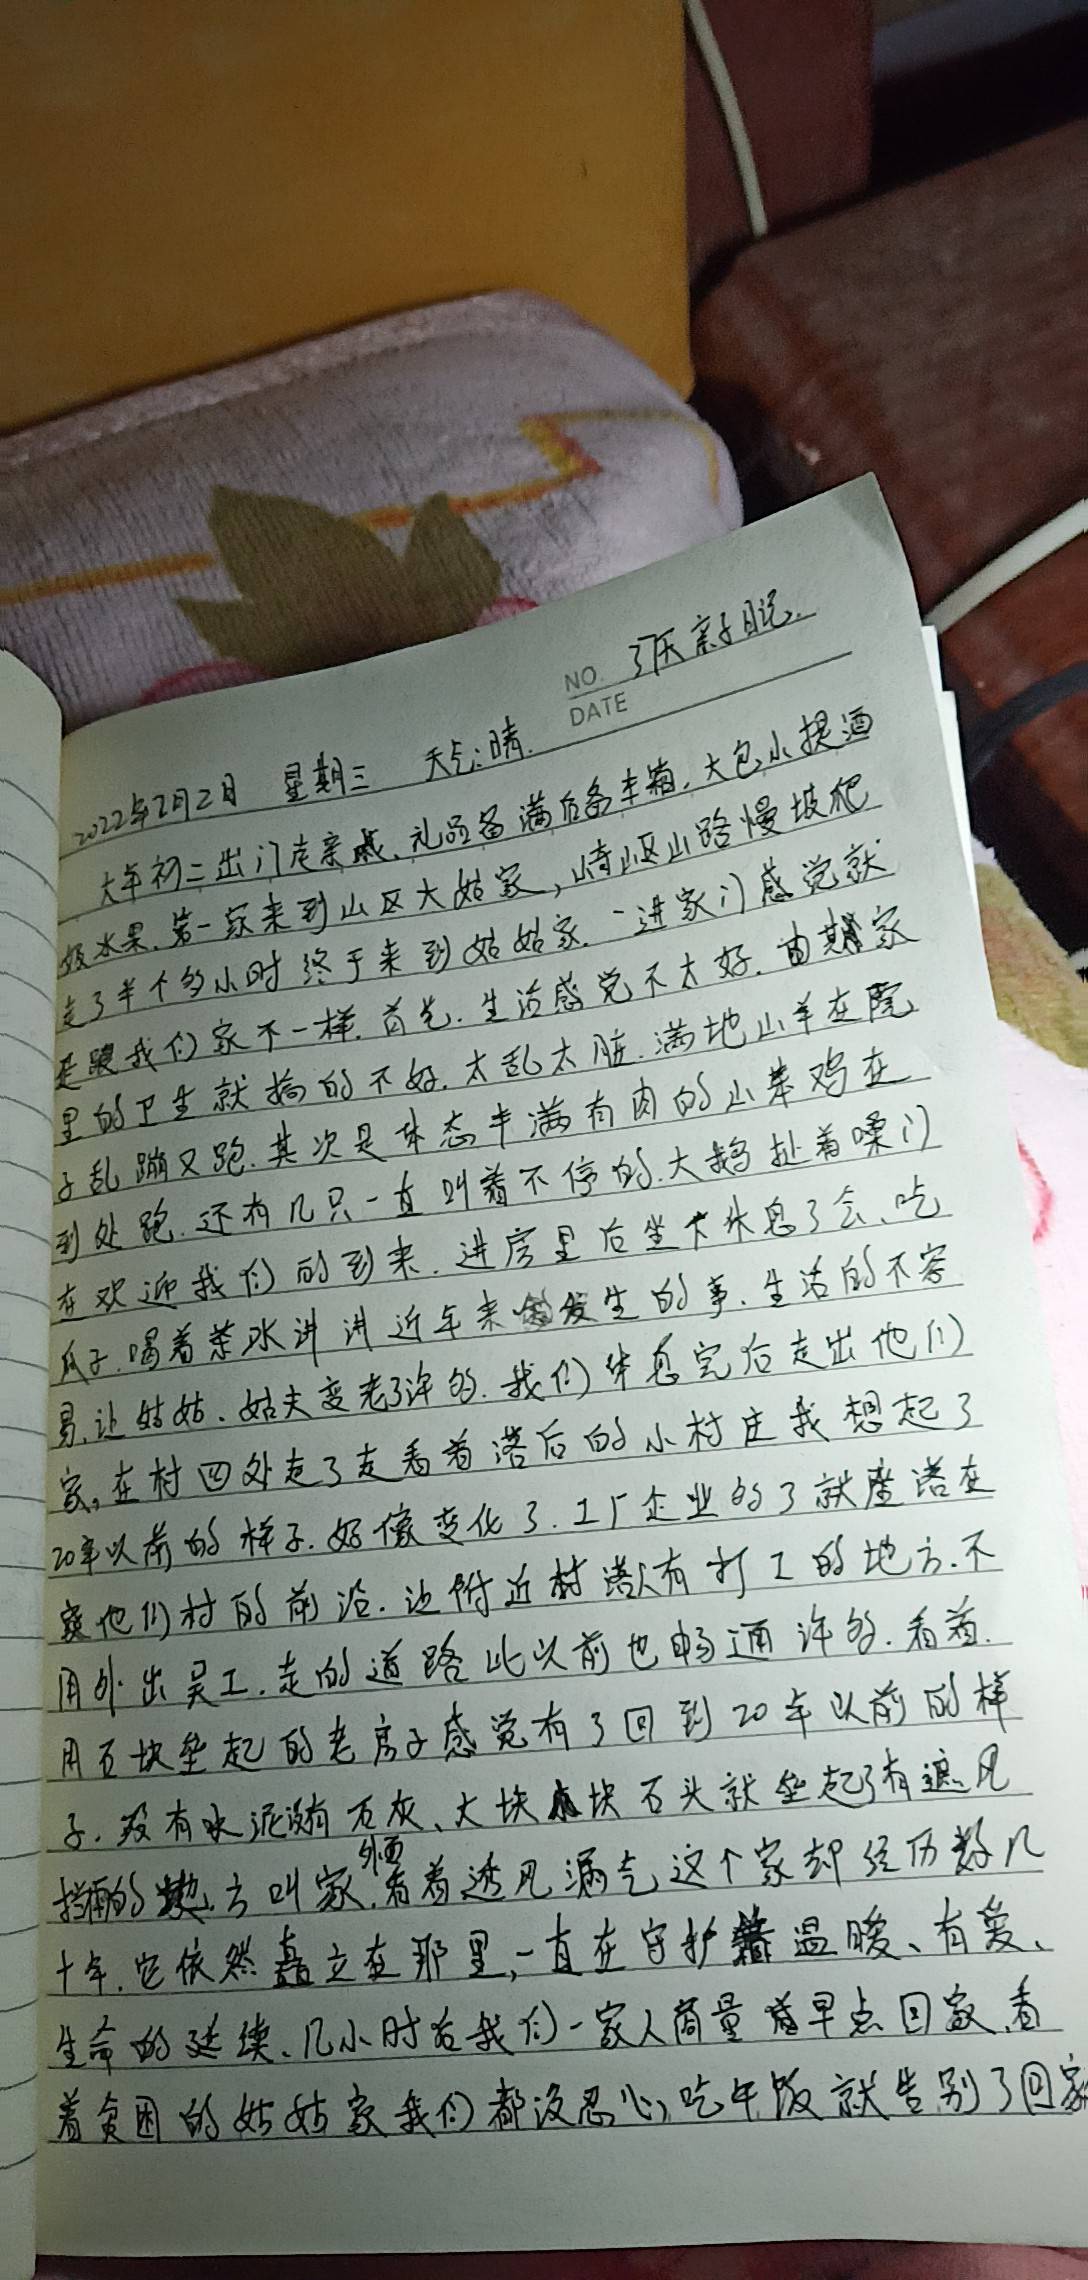 NO. 3厌亲子日记.
DATE
2022年2月2日 星期三 天气:晴.
大年初二出门走亲戚、礼品备满后备车箱.大包小提酒
水果.第一家来到山区大姑家,崎岖山路慢坡爬
走了半个多小时终于来到姑姑家.一进家门感觉就
是跟我们家不一样.首先.生活感觉不太好.由其家
里的卫生就搞的不好.太乱太脏.满地山羊在院
子乱蹦又跑.其次是体态丰满有肉的山苯鸡在
到处跑.还有几只一直叫着不停的.大鹅扯着嗓门
在欢迎我们的到来.进房里后坐下休息了会、吃
瓜子.喝着茶水讲讲近年来发生的事.生活的不容
易.让姑姑、姑夫变老了许多.我们休息完后走出他们
家,在村四处走了走看着落后的小村庄我想起了
20年以前的样子.好像变化了.工厂企业的了就座落在
他们村的前沿.让附近村落人有打工的地方.不
用外出吴工.走的道路比以前也畅通许多.看着.
用石块垒起的老房子感觉有了回到20年以前的样
子.没有水泥没有石灰、大块小块石头就垒起了有遮风
挡雨的地方叫家.外面看着透风漏气这个家却经历数几
十年.它依然矗立在那里,一直在守护着温暖、有爱、
生命的延续、几小时后我们一家人商量着早点回家.看
着贫困的姑姑家我们都没忍心,吃午饭就告别了回家